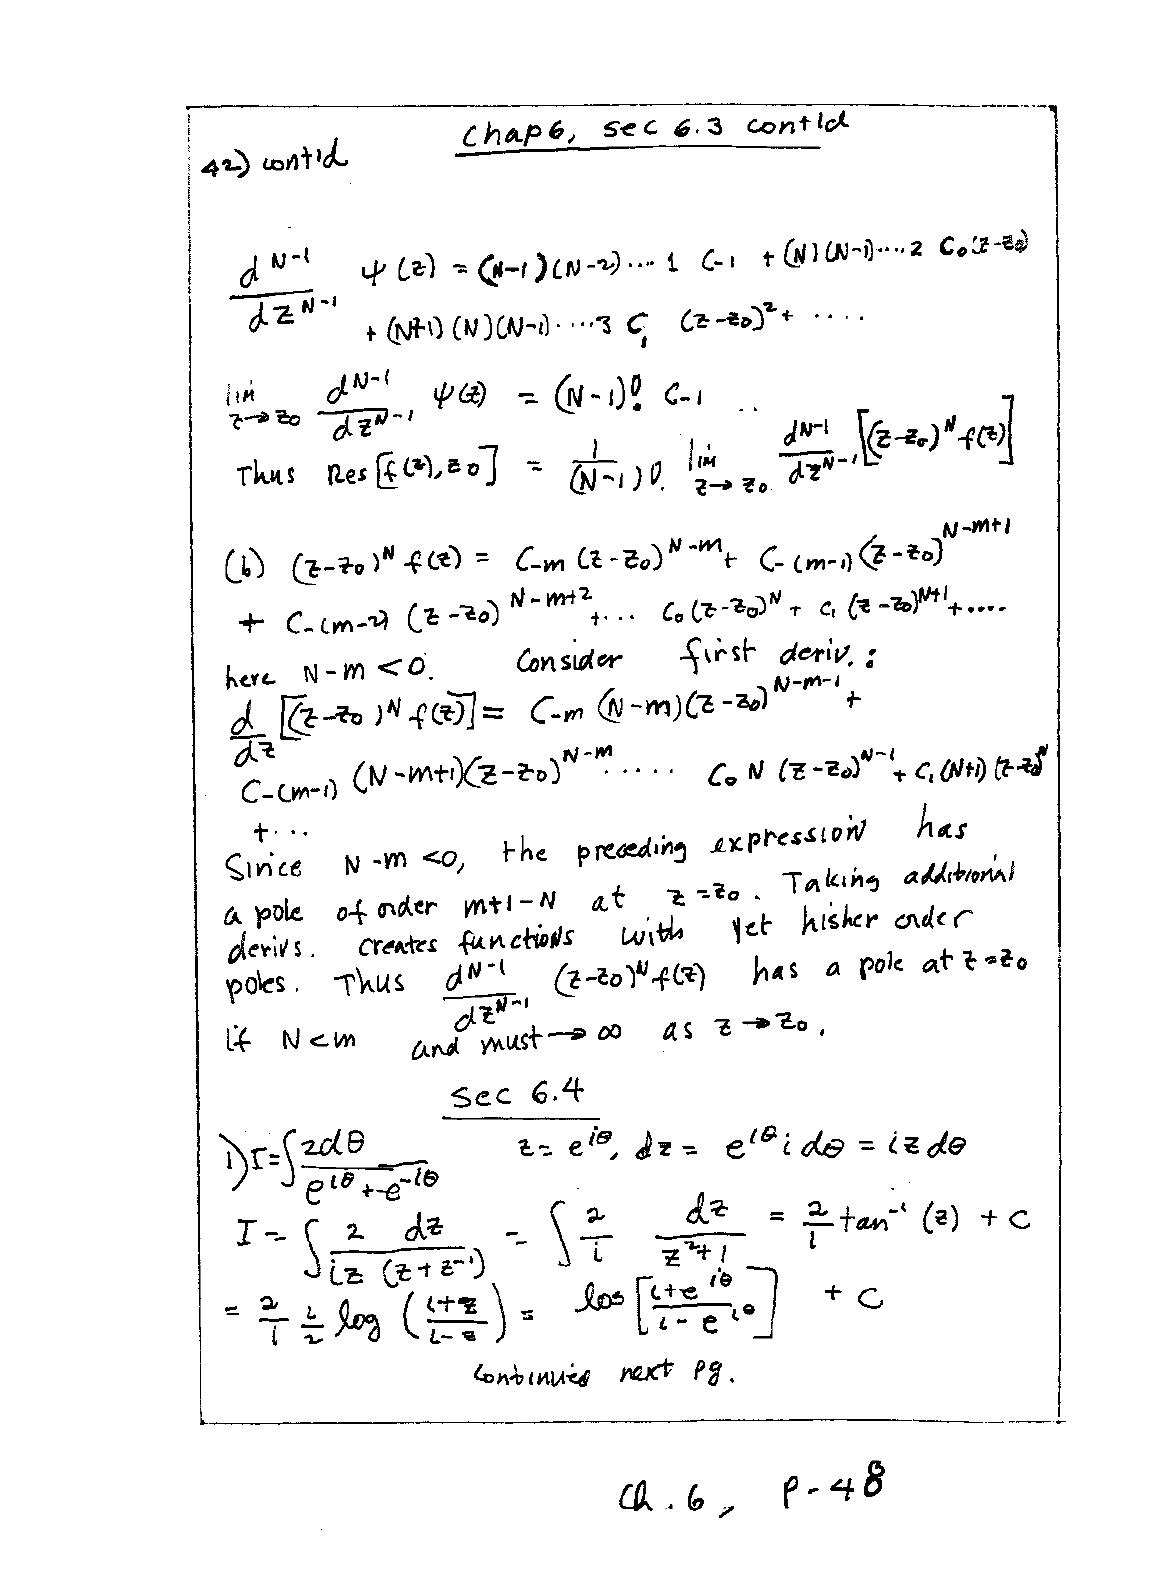 Chap 6, sec 6.3 cont'd
42) cont'd
d^{N-1}/dz^{N-1} ψ(z) = (N-1)(N-2)···· 1 C_{-1} + (N)(N-1)····2 C_0(z-z_0)
+ (N+1)(N)(N-1)·····3 C_1 (z-z_0)^2 + ····
lim z→z_0 d^{N-1}/dz^{N-1} ψ(z) = (N-1)! C_{-1}
Thus Res[f(z), z_0] = 1/(N-1)! lim z→z_0 d^{N-1}/dz^{N-1} [(z-z_0)^N f(z)]
(b) (z-z_0)^N f(z) = C_{-m} (z-z_0)^{N-m} + C_{-(m-1)} (z-z_0)^{N-m+1}
+ C_{-(m-2)} (z-z_0)^{N-m+2} +··· C_0 (z-z_0)^N + C_1 (z-z_0)^{N+1} +····
here N-m <0. Consider first deriv. :
d/dz [(z-z_0)^N f(z)] = C_{-m} (N-m)(z-z_0)^{N-m-1} +
C_{-(m-1)} (N-m+1)(z-z_0)^{N-m} ····· C_0 N (z-z_0)^{N-1} + C_1 (N+1) (z-z_0)^N
+···
Since N-m <0, the preceding expression has
a pole of order m+1-N at z=z_0. Taking additional
derivs. creates functions with yet higher order
poles. Thus d^{N-1}/dz^{N-1} (z-z_0)^N f(z) has a pole at z=z_0
if N<m and must → ∞ as z → z_0.
sec 6.4
1) I = ∫ 2dθ/(e^{iθ} + e^{-iθ}) z = e^{iθ}, dz = e^{iθ} i dθ = iz dθ
I = ∫ 2 dz/(iz (z+z^{-1})) = ∫ 2/i dz/(z^2+1) = 2/i tan^{-1} (z) + C
= 2/i i/2 log ((i+z)/(i-z)) = log [(i+e^{iθ})/(i-e^{iθ})] + C
continued next pg.
Ch. 6, p-48